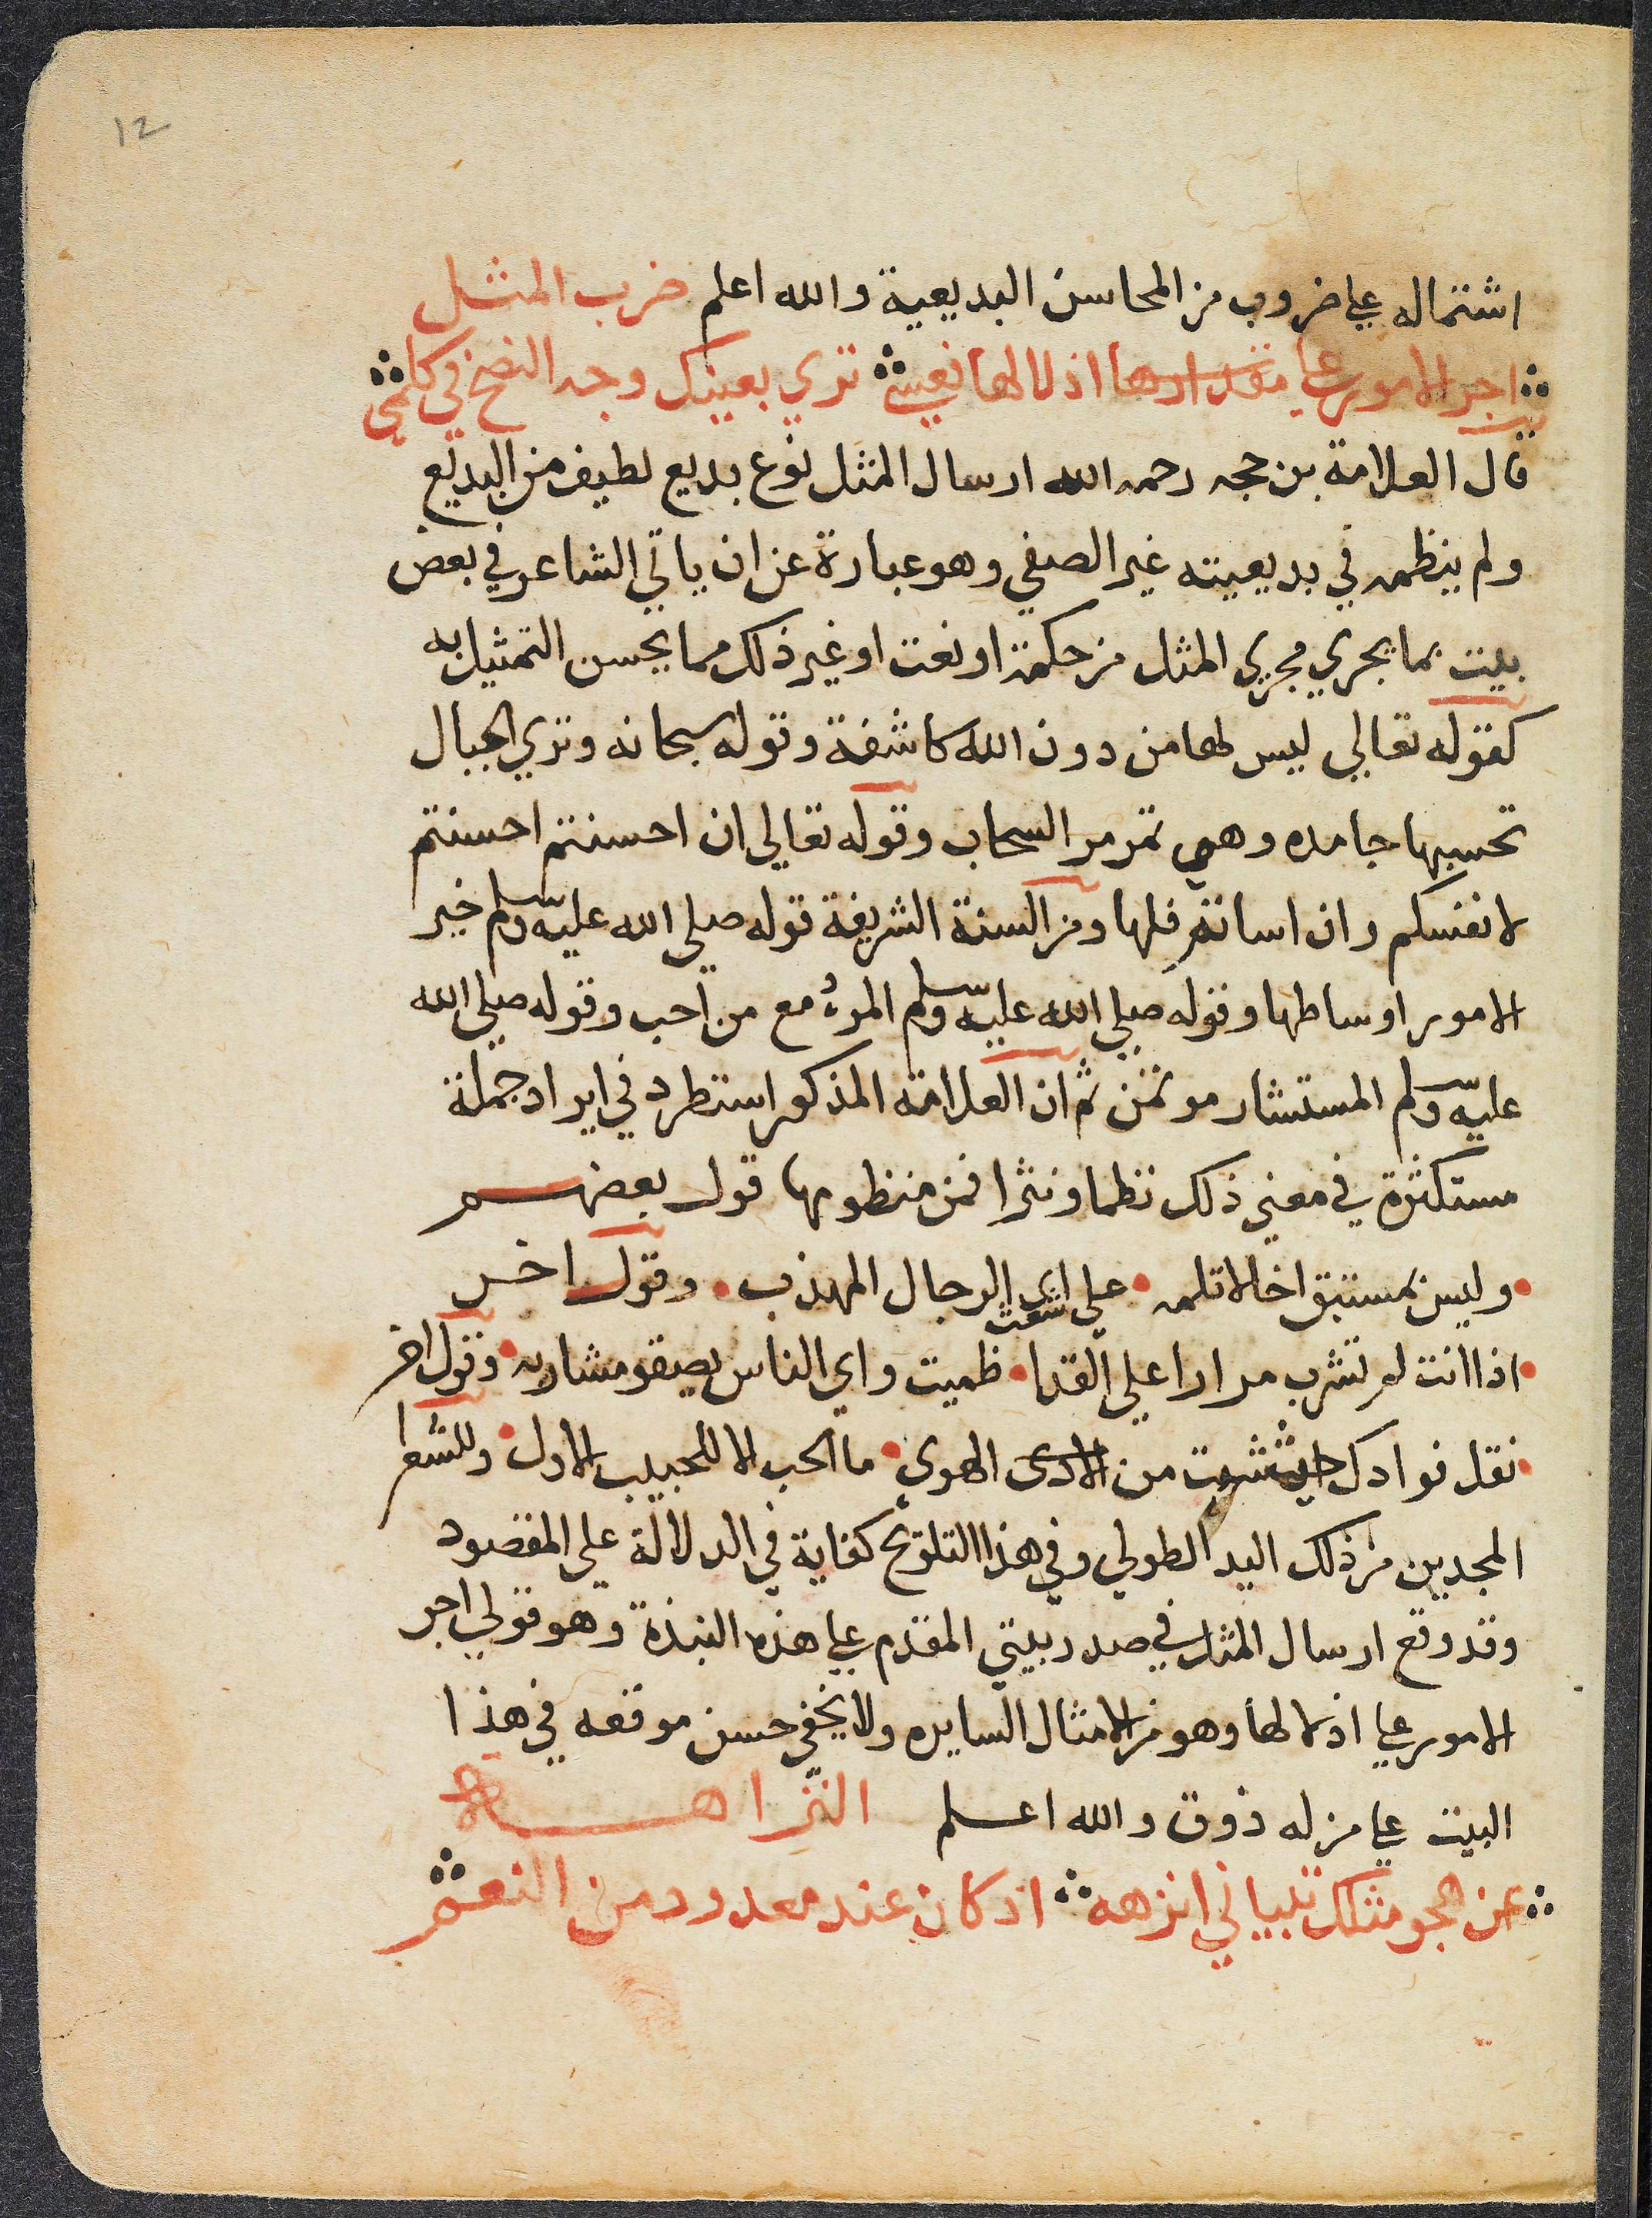 12
اشتماله علي ضروب من المحاسن البديعية والله اعلم ضرب المثل
اجر الامور علي مقدارها اذلالها نفسي تري بعينك وجه النصح في كلمي
قال العلامة بن حجه رحمه الله ارسال المثل نوع بديع لطيف من البديع
ولم ينظمه في بديعيته غير الصفي وهو عبارة عن ان ياتي الشاعر في بعض
بيت بما يجري مجري المثل من حكمة او نعت او غير ذلك مما يحسن التمثيل به
كقوله تعالي ليس لها من دون الله كاشفة وقوله سبحانه وتري الجبال
تحسبها جامده وهي تمر مر السحاب وقوله تعالي ان احسنتم احسنتم
لانفسكم وان اساتم فلها ومن السنة الشريفة قوله صلي الله عليه وسلم خير
الامور اوساطها وقوله صلي الله عليه وسلم المرء مع من احب وقوله صلي الله
عليه وسلم المستشار موتمن ثم ان العلامة المذكور استطرد في ايراد جملة
مستكثرة في معني ذلك نظما ونثرا فمن منظومها قول بعضهم
وليس بمستبق اخا لا تلمه علي شعث اي الرجال المهذب وقول اخر
اذا انت لم تشرب مرارا علي القذا ظميت واي الناس يصفو مشاربه وقول اخر
نقل فوادك حيث شيت من الهوي ما الحب الا للحبيب الاول وللشعرا
المجدين من ذلك اليد الطولي وفي هذا التلويح كفاية في الدلالة علي المقصود
وقد وقع ارسال المثل في صدر بيتي المقدم علي هذه النبذة وهو قولي اجر
الامور علي اذلالها وهو من الامثال السايره ولا يخفي حسن موقعه في هذا
البيت علي من له ذوق والله اعلم النزاهة
عن هجو مثلك تبياني انزهه اذ كان عند معدود من النعم